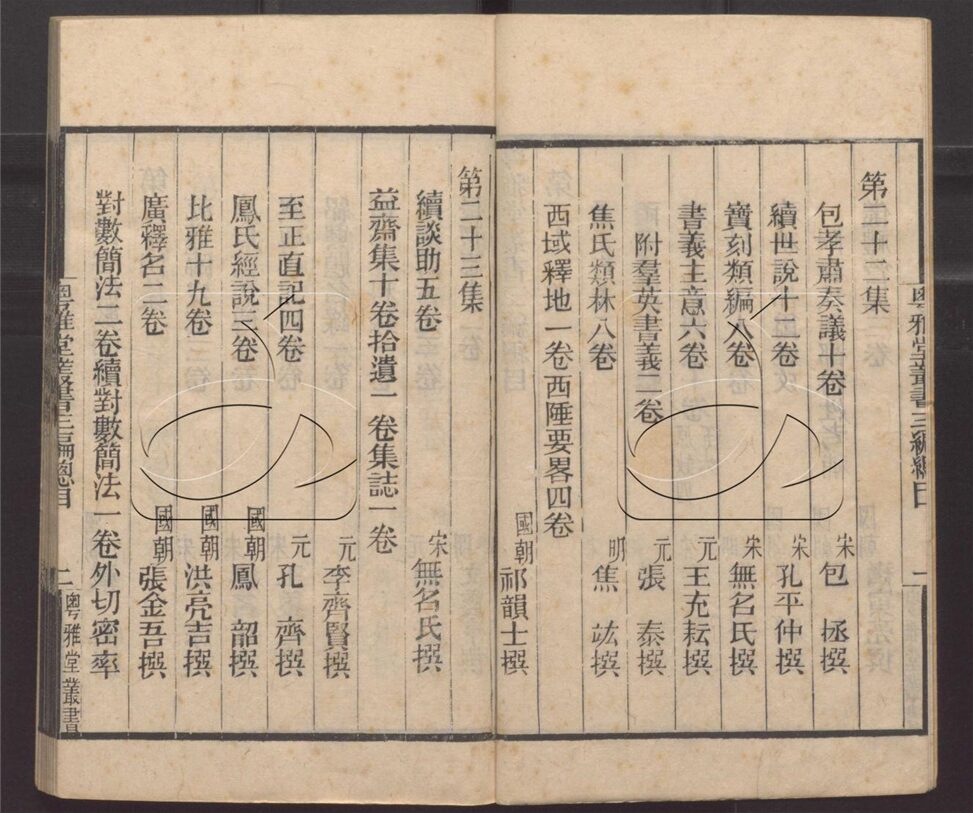 粵雅堂叢書三編總目
第二十二集
包孝肅奏議十卷 宋 包 拯撰
續世說十二卷 宋 孔平仲撰
寶刻類編八卷 宋 無名氏撰
書義主意六卷 元 王充耘撰
附羣英書義二卷 元 張 泰撰
焦氏類林八卷 明 焦 竑撰
西域釋地一卷西陲要畧四卷
國朝 祁韻士撰
第二十三集
續談助五卷 宋 無名氏撰
益齋集十卷拾遺一卷集誌一卷
元 李齊賢撰
至正直記四卷 元 孔 齊撰
鳳氏經說三卷 國朝 鳳 韶撰
比雅十九卷 國朝 洪亮吉撰
廣釋名二卷 國朝 張金吾撰
對數簡法二卷續對數簡法一卷外切密率
粵雅堂叢書三編總目 二 粵雅堂叢書